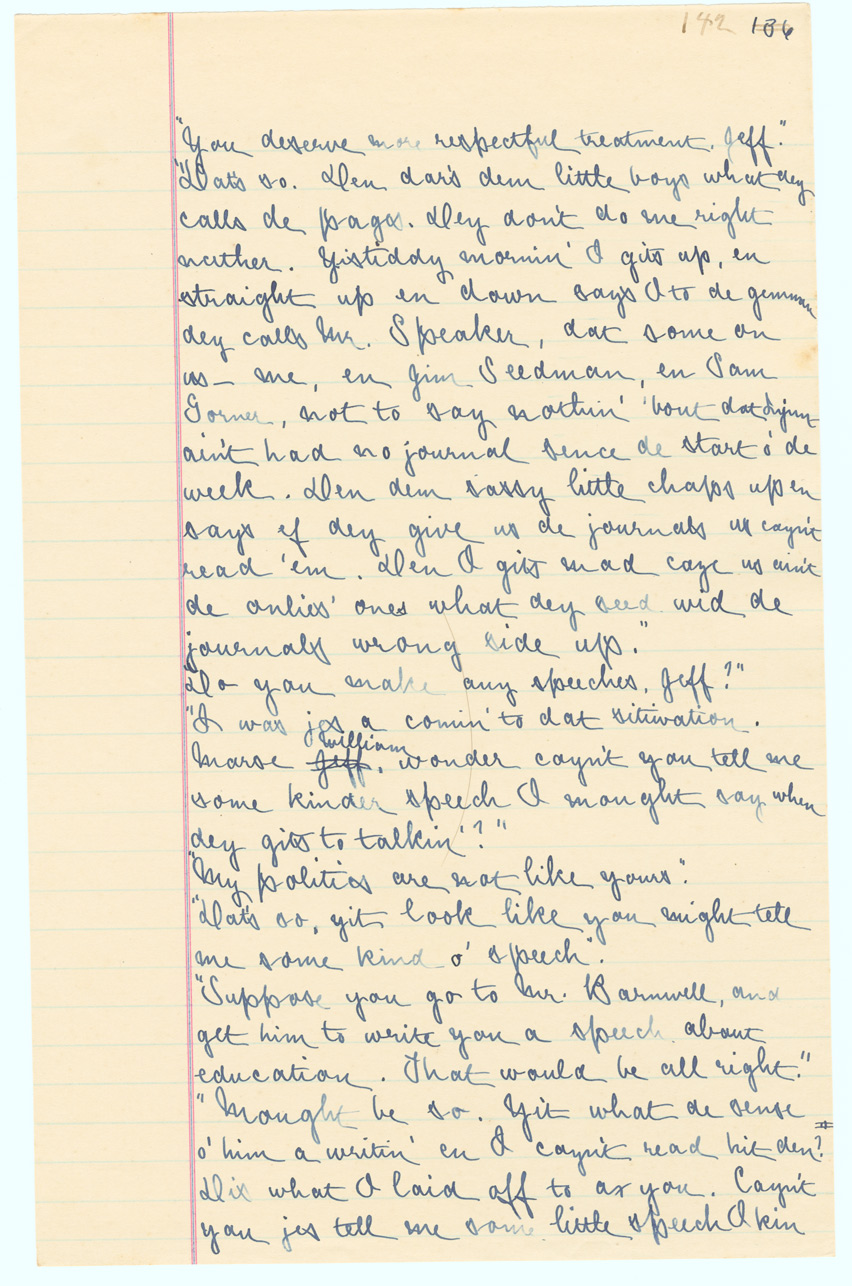 142 136
"You deserve more respectful treatment, Jeff."
"Dat's so. Den dar's dem little boys what dey
calls de pages. Dey don't do me right
nuther. Yistiddy mornin' I gits up, en
straight up en down says I to de gemman
dey calls Mr. Speaker, dat some on
us — me, en Jim Seedman, en Sam
Gorner, not to say nothin' 'bout dat
ain't had no journal sence de start o' de
week. Den dem sassy little chaps up en
says ef dey give us de journals us cayn't
read 'em. Den I gits mad caze us ain't
de onlies' ones what dey seed wid de
journals wrong side up."
"Do you make any speeches, Jeff?"
"I was jes a comin' to dat sitiwation.
William
Marse Jeff, wonder cayn't you tell me
some kinder speech I mought say when
dey gits to talkin'?"
"My politics are not like yours".
"Dat's so, yit look like you might tell
me some kind o' speech".
"Suppose you go to Mr. Barnwell, and
get him to write you a speech about
education. That would be all right."
"Mought be so. Yit what de sense
o' him a writin' en I cayn't read hit den?
Dix what I laid off to ax you. Cayn't
you jes tell me some little speech I kin